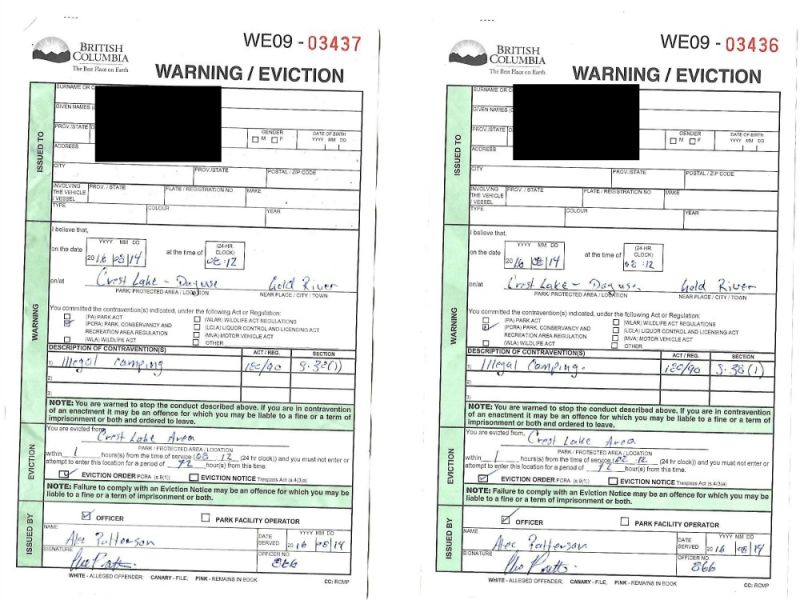 WE09 - 03437
BRITISH
COLUMBIA
The Best Place on Earth
WARNING / EVICTION
ISSUED TO
SURNAME OR C
GIVEN NAMES (
PROV./STATE
GENDER
M F
DATE OF BIRTH
YYYY MM DD
ADDRESS
CITY
PROV./STATE
POSTAL / ZIP CODE
INVOLVING
THE VEHICLE
/ VESSEL
PROV. / STATE
PLATE / REGISTRATION NO
MAKE
TYPE
COLOUR
YEAR
WARNING
I believe that,
on the date
YYYY MM DD
2016/08/14
at the time of
(24-HR.
CLOCK)
08:12
on/at
Crest Lake - Dayuse
Gold River
PARK/ PROTECTED AREA / LOCATION
NEAR PLACE / CITY / TOWN
You committed the contravention(s) indicated, under the following Act or Regulation:
(PA) PARK ACT
(PCRA) PARK, CONSERVANCY AND
RECREATION AREA REGULATION
(WLA) WILDLIFE ACT
(WLAR) WILDLIFE ACT REGULATIONS
(LCLA) LIQUOR CONTROL AND LICENSING ACT
(MVA) MOTOR VEHICLE ACT
OTHER
DESCRIPTION OF CONTRAVENTION(S)
ACT / REG.
SECTION
1) Illegal Camping 180/90
2)
3)
NOTE: You are warned to stop the conduct described above. If you are in contravention
of an enactment it may be an offence for which you may be liable to a fine or a term of
imprisonment or both and ordered to leave.
EVICTION
You are evicted from,
Crest Lake Area
PARK / PROTECTED AREA / LOCATION
within 1 hours(s) from the time of service (08:12 (24 hr clock)) and you must not enter or
attempt to enter this location for a period of 72 hour(s) from this time.
EVICTION ORDER
EVICTION NOTICE Trespass Act
NOTE: Failure to comply with an Eviction Notice may be an offence for which you may be
liable to a fine or a term of imprisonment or both.
ISSUED BY
OFFICER
PARK FACILITY OPERATOR
NAME
Alec Patterson
DATE
SERVED
YYYY MM DD
2016/08/14
SIGNATURE
OFFICER NO.
866
WHITE - ALLEGED OFFENDER, CANARY - FILE, PINK - REMAINS IN BOOK
CC: RCMP
WE09 - 03436
BRITISH
COLUMBIA
The Best Place on Earth
WARNING / EVICTION
ISSUED TO
SURNAME OR C
GIVEN NAMES (
PROV./STATE
GENDER
M F
DATE OF BIRTH
YYYY MM DD
ADDRESS
CITY
PROV./STATE
POSTAL / ZIP CODE
INVOLVING
THE VEHICLE
/ VESSEL
PROV. / STATE
PLATE / REGISTRATION NO
MAKE
TYPE
COLOUR
YEAR
WARNING
I believe that,
on the date
YYYY MM DD
2016/08/14
at the time of
(24-HR.
CLOCK)
08:12
on/at
Crest Lake - Dayuse
Gold River
PARK/ PROTECTED AREA / LOCATION
NEAR PLACE / CITY / TOWN
You committed the contravention(s) indicated, under the following Act or Regulation:
(PA) PARK ACT
(PCRA) PARK, CONSERVANCY AND
RECREATION AREA REGULATION
(WLA) WILDLIFE ACT
(WLAR) WILDLIFE ACT REGULATIONS
(LCLA) LIQUOR CONTROL AND LICENSING ACT
(MVA) MOTOR VEHICLE ACT
OTHER
DESCRIPTION OF CONTRAVENTION(S)
ACT / REG.
SECTION
1) Illegal Camping. 180/90
2)
3)
NOTE: You are warned to stop the conduct described above. If you are in contravention
of an enactment it may be an offence for which you may be liable to a fine or a term of
imprisonment or both and ordered to leave.
EVICTION
You are evicted from,
Crest Lake Area
PARK / PROTECTED AREA / LOCATION
within 1 hours(s) from the time of service (08:12 (24 hr clock)) and you must not enter or
attempt to enter this location for a period of 72 hour(s) from this time.
EVICTION ORDER
EVICTION NOTICE Trespass Act
NOTE: Failure to comply with an Eviction Notice may be an offence for which you may be
liable to a fine or a term of imprisonment or both.
ISSUED BY
OFFICER
PARK FACILITY OPERATOR
NAME
Alec Patterson
DATE
SERVED
YYYY MM DD
2016/08/14
SIGNATURE
OFFICER NO.
866
WHITE - ALLEGED OFFENDER, CANARY - FILE, PINK - REMAINS IN BOOK
CC: RCMP